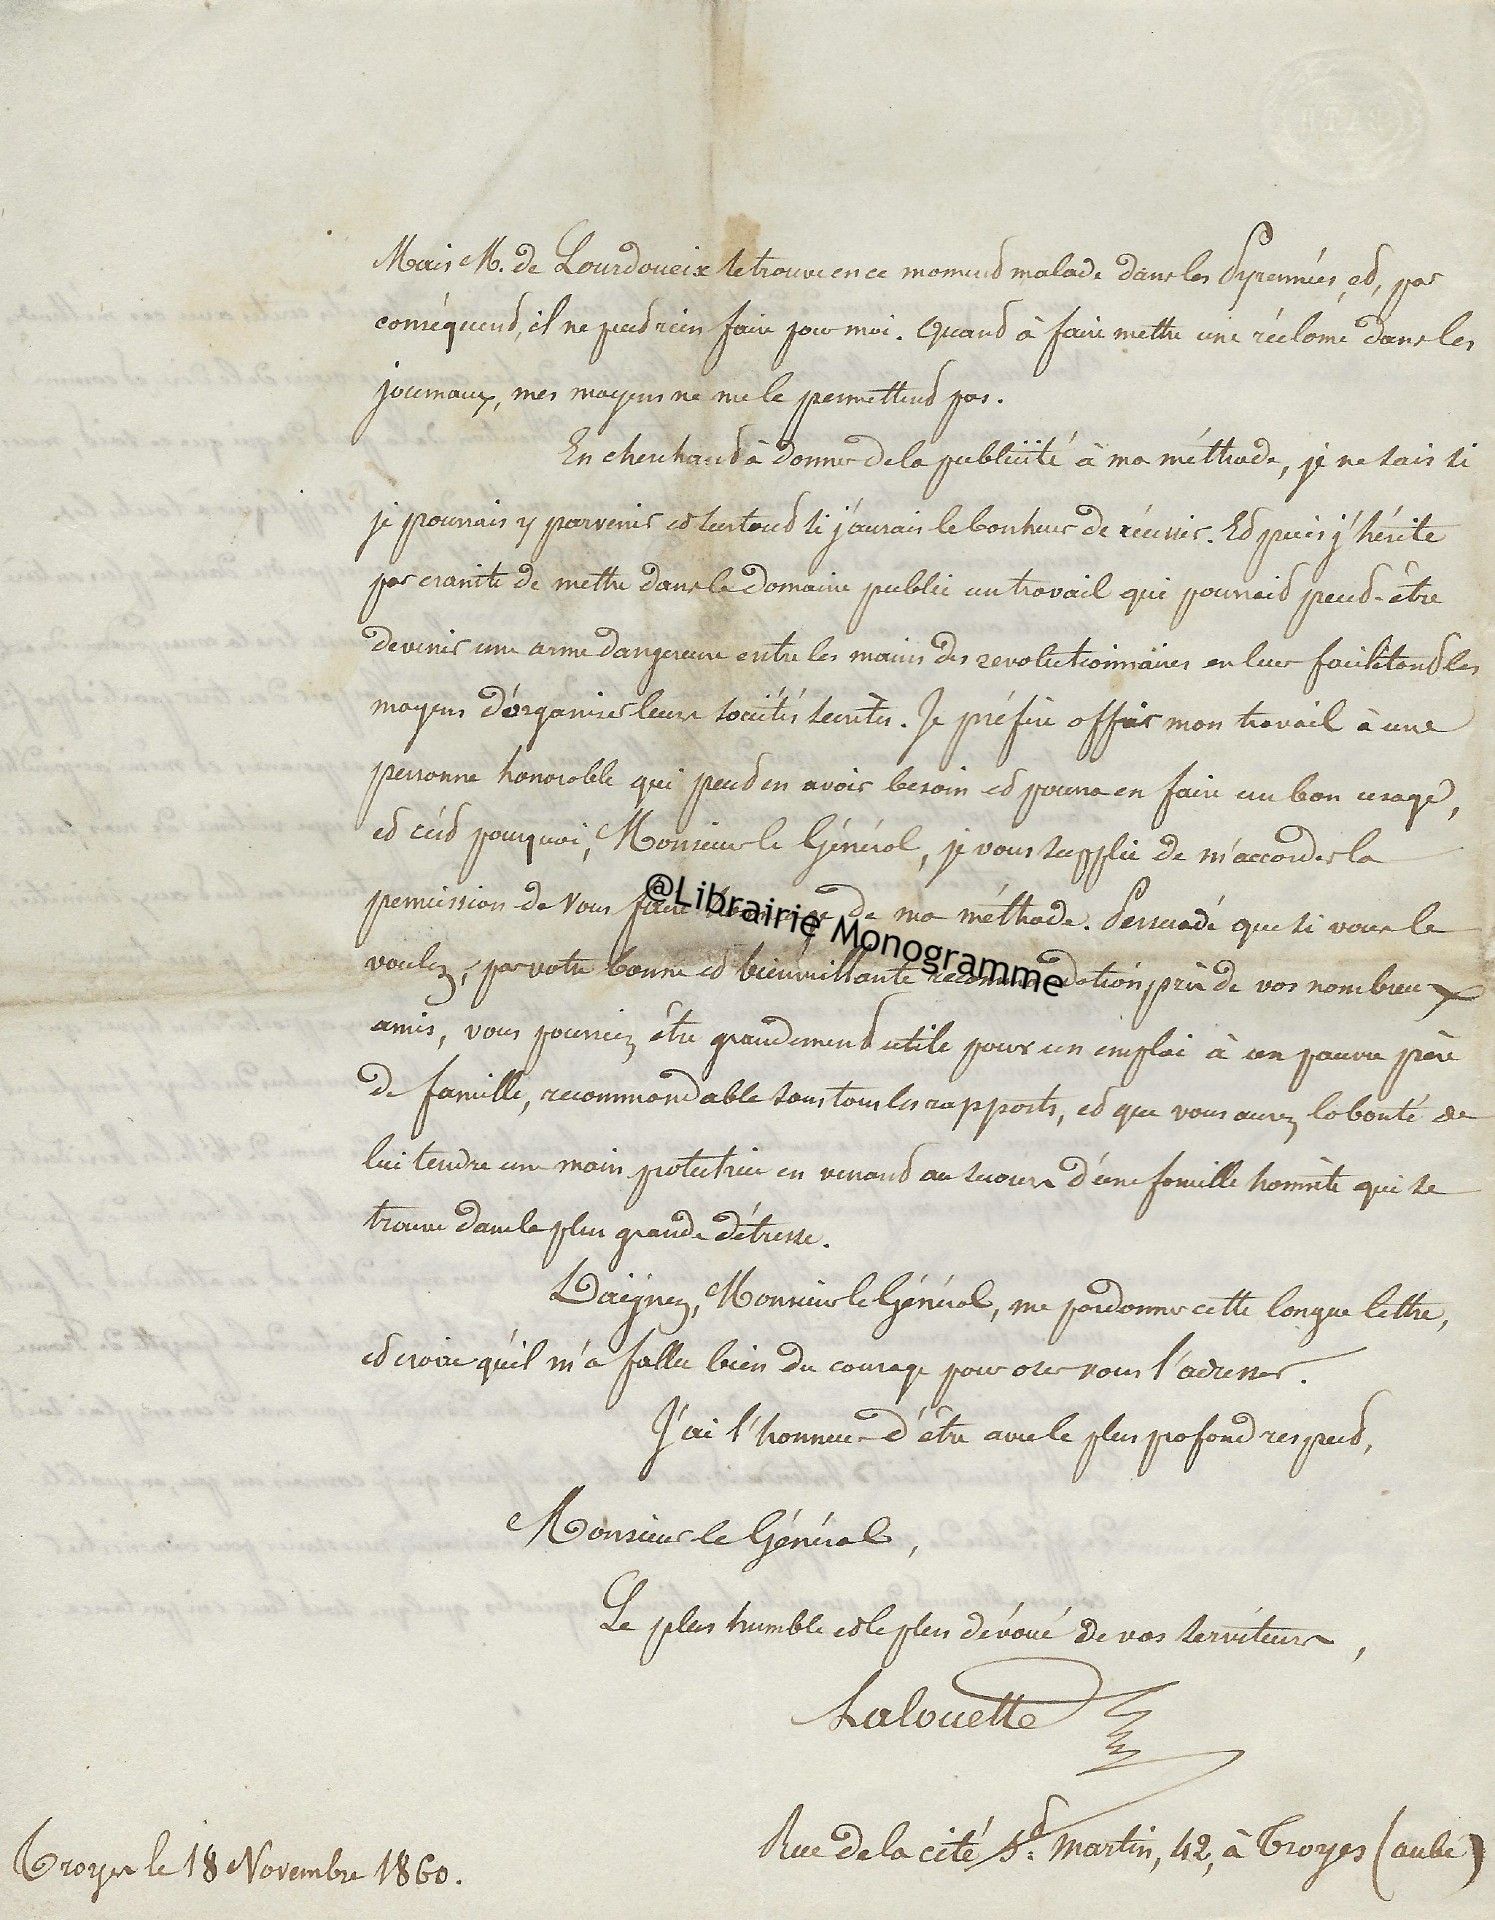 Mais M. de Lourdoueix se trouve en ce moment malade dans les Pyrennées, et, par
conséquent, il ne peut rien faire pour moi. Quant à faire mettre une réclame dans les
journaux, mes moyens ne me le permettent pas.
En cherchant à donner de la publicité à ma méthode, je ne sais si
je pourrais y parvenir et surtout si j'aurais le bonheur de réussir. Et puis j'hésite
par crainte de mettre dans le domaine public un travail qui pourrait peut-être
devenir une arme dangereuse entre les mains des revolutionnaires en leur facilitant les
moyens d'organiser leurs sociétés secrètes. Je préfère offrir mon travail à une
personne honorable qui peut en avoir besoin et pourra en faire un bon usage,
et c'est pourquoi, Monsieur le Général, je vous supplie de m'accorder la
permission de vous faire hommage de ma méthode. Persuadé que si vous le
voulez, par votre bonne et bienveillante recommandation, près de vos nombreux
amis, vous pourriez être grandement utile pour un emploi à un pauvre père
de famille, recommandable sous tous les rapports, et que vous aurez la bonté de
lui tendre une main protectrice en venant au secours d'une famille honnête qui se
trouve dans la plus grande détresse.
Daignez, Monsieur le Général, me pardonner cette longue lettre,
et croire qu'il m'a fallu bien du courage pour oser vous l'adresser.
J'ai l'honneur d'être avec le plus profond respect,
Monsieur le Général,
Le plus humble et le plus dévoué de vos serviteurs,
Lalouette
Rue de la cité St. Martin, 42, à Troyes (aube)
Troyes le 18 Novembre 1860.
@Librairie Monogramme